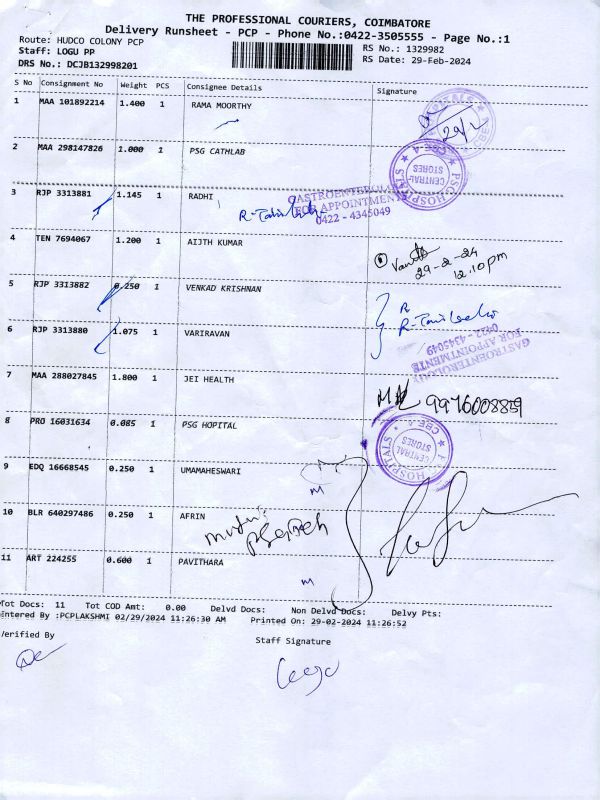 THE PROFESSIONAL COURIERS, COIMBATORE
Delivery Runsheet - PCP - Phone No.:0422-3505555 - Page No.:1
Route: HUDCO COLONY PCP
RS No.: 1329982
Staff: LOGU PP
RS Date: 29-Feb-2024
DRS No.: DCJB132998201
S No Consignment No Weight PCS Consignee Details Signature
1 MAA 101892214 1.400 1 RAMA MOORTHY
29/2
2 MAA 298147826 1.000 1 PSG CATHLAB
PSG HOSPITALS
CENTRAL STORES
CBE-4
3 RJP 3313881 1.145 1 RADHI
GASTROENTEROLOGY
FOR APPOINTMENTS
0422 - 4345049
4 TEN 7694067 1.200 1 AIJTH KUMAR
29-2-24
12.10pm
5 RJP 3313882 0.250 1 VENKAD KRISHNAN
6 RJP 3313880 1.075 1 VARIRAVAN
GASTROENTEROLOGY
FOR APPOINTMENTS
0422 - 4345049
7 MAA 288027845 1.800 1 JEI HEALTH
8 PRO 16031634 0.085 1 PSG HOPITAL
HOSPITALS
CENTRAL STORES
CBE-4
9 EDQ 16668545 0.250 1 UMAMAHESWARI
M
10 BLR 640297486 0.250 1 AFRIN
11 ART 224255 0.600 1 PAVITHARA
M
Tot Docs: 11 Tot COD Amt: 0.00 Delvd Docs: Non Delvd Docs: Delvy Pts:
Entered By :PCPLAKSHMI 02/29/2024 11:26:30 AM Printed On: 29-02-2024 11:26:52
Verified By
Staff Signature